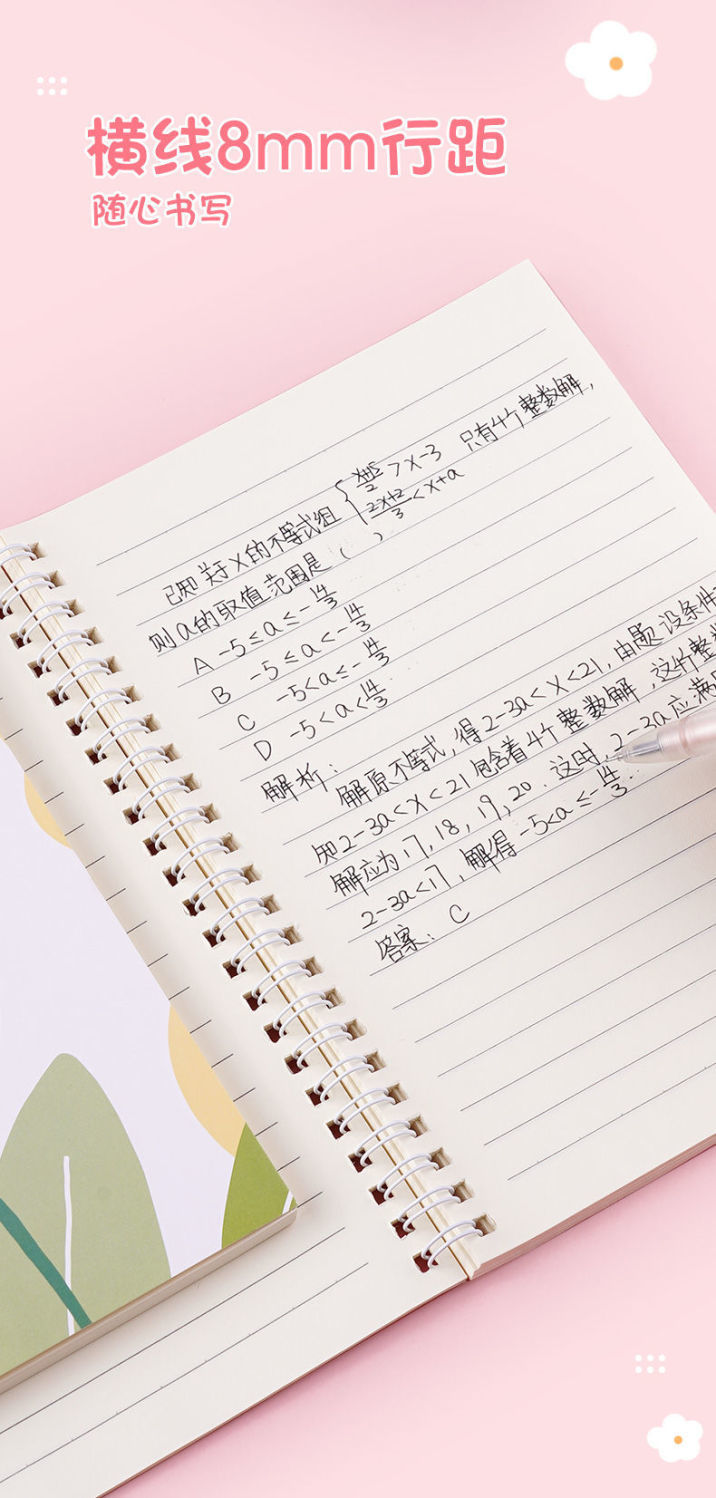 横线8mm行距
随心书写
已知关于x的不等式组 { x+5/2 > x-3 只有4个整数解,
2x+2/3 < x+a
则a的取值范围是( )
A -5≤a≤-14/3
B -5≤a<-14/3
C -5<a≤-14/3
D -5<a<14/3
解析:
解原不等式,得2-3a<x<21,由题设条件
知2-3a<x<21包含着4个整数解,这4个整数
解应为17,18,19,20.这时,2-3a应满
2-3a<17,解得-5<a≤-14/3..
答案:C